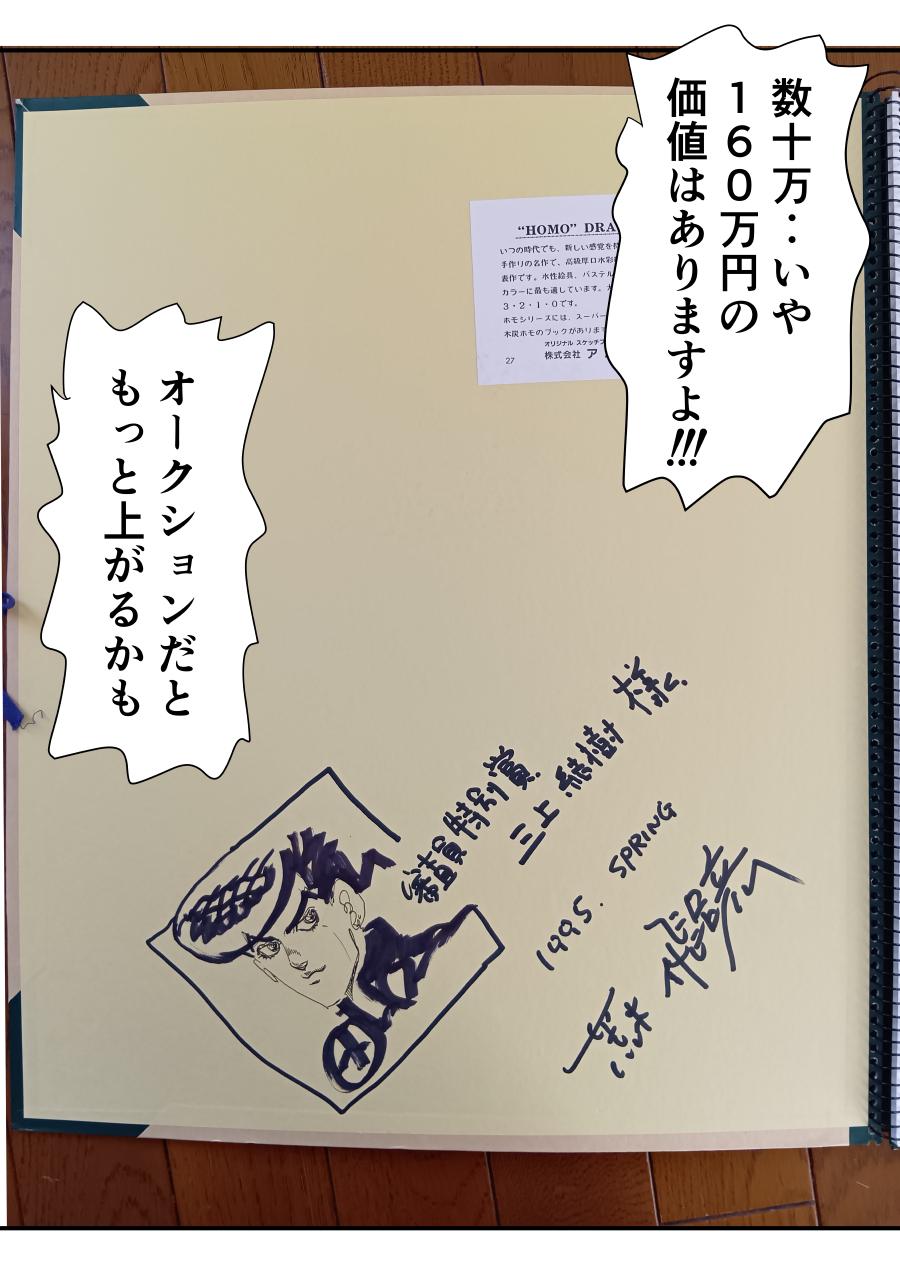 数十万‥いや
160万円の
価値はありますよ!!!
オークションだと
もっと上がるかも
“HOMO” DRA
いつの時代でも、新しい感覚を
手作りの名作で、高級厚口水彩
表作です。水性絵具、パステル
カラーに最も適しています。
3・2・1・0です。
ホモシリーズには、スーパー
木炭ホモのブックがありま
オリジナル スケッチブ
株式会社 ア
27
審査員特別賞
三上 結樹 様
1995. SPRING
荒木 飛呂彦